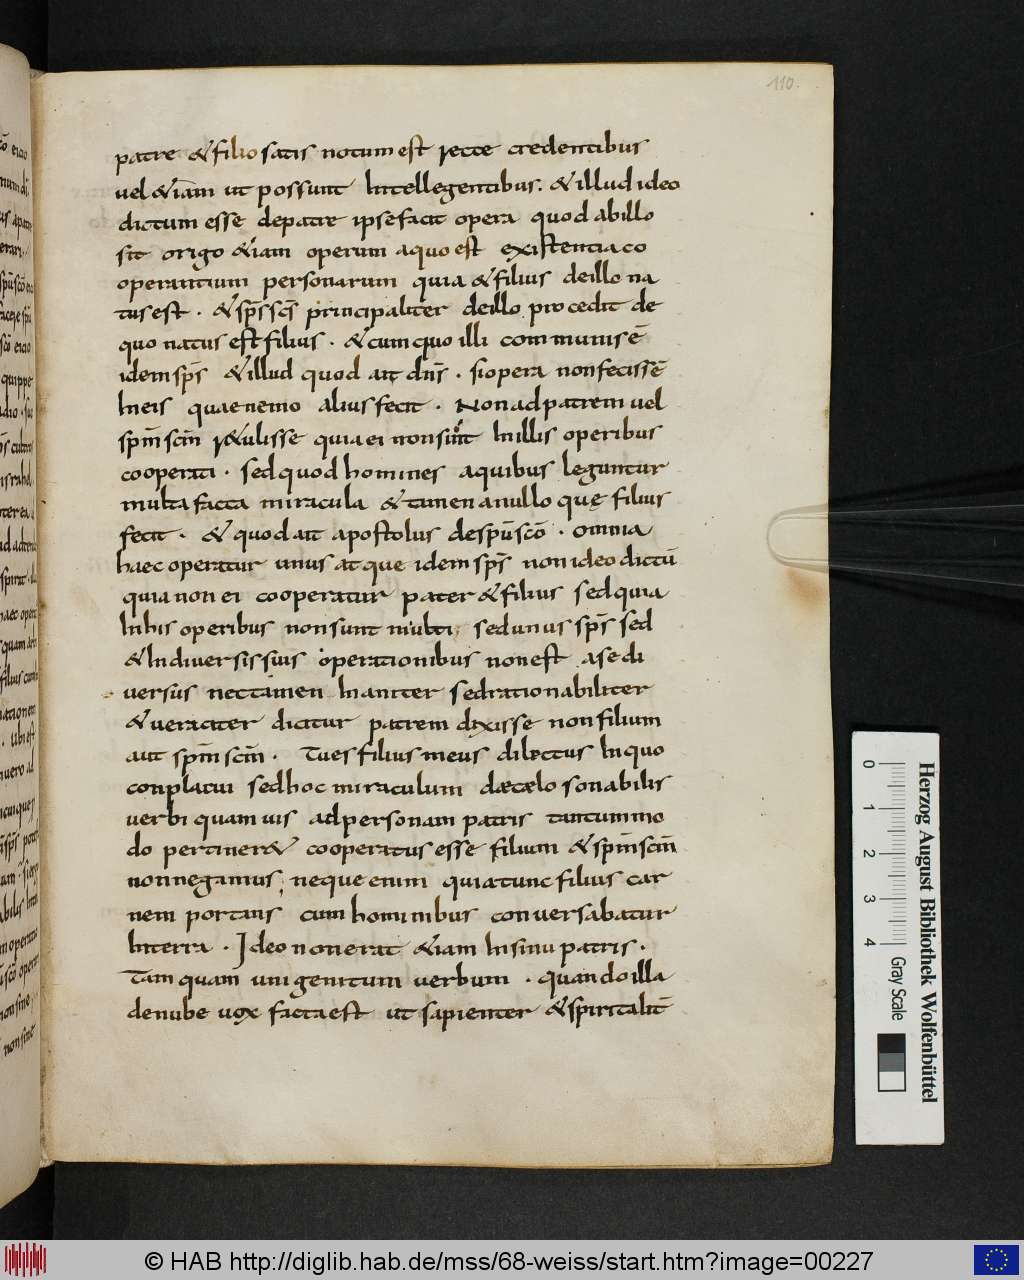 110.
patre & filio satis notum est recte credentibus
uel & iam ut possunt Intellegentibus. & illud ideo
dictum esse depatre ipse facit opera quod abillo
sit origo & iam operum aquo est existentia co
operantium personarum quia & filius deillo na
tus est · & sp̄s sc̄s principaliter deillo procedit de
quo natus est filius · & cum quo illi communis ē
idem sp̄s & illud quod ait dn̄s · si opera non fecissē
In eis quae nemo alius fecit · Non ad patrem uel
sp̄m sc̄m r&ulisse quia ei non sint In illis operibus
cooperati · sed quod homines aquibus leguntur
multa facta miracula & tamen anullo quę filius
fecit · & quod ait apostolus despū scō · omnia
haec operatur unus atque idem sp̄s non ideo dictū
quia non ei cooperatur pater & filius sed quia
In his operibus non sunt multi, sed unus sp̄s sed
& In diuersis suis operationibus non est ase di
uersus nec tamen Inaniter sed rationabiliter
& ueraciter dicitur patrem dixisse non filium
aut sp̄m sc̄m · Tu es filius meus dilectus In quo
conplacui sed hoc miraculum dęcęlo sonabilis
uerbi quamuis ad personam patris tantummo
do pertiner& cooperatus esse filium & sp̄m sc̄m
non negamus; neque enim quia tunc filius car
nem portans cum hominibus conuersabatur
In terra · Ideo non erat & iam In sinu patris ·
Tamquam unigenitum uerbum · quando illa
denube uox facta est ut sapienter & spiritalit̄
0 1 2 3 4
Herzog August Bibliothek Wolfenbüttel
Gray Scale
© HAB http://diglib.hab.de/mss/68-weiss/start.htm?image=00227